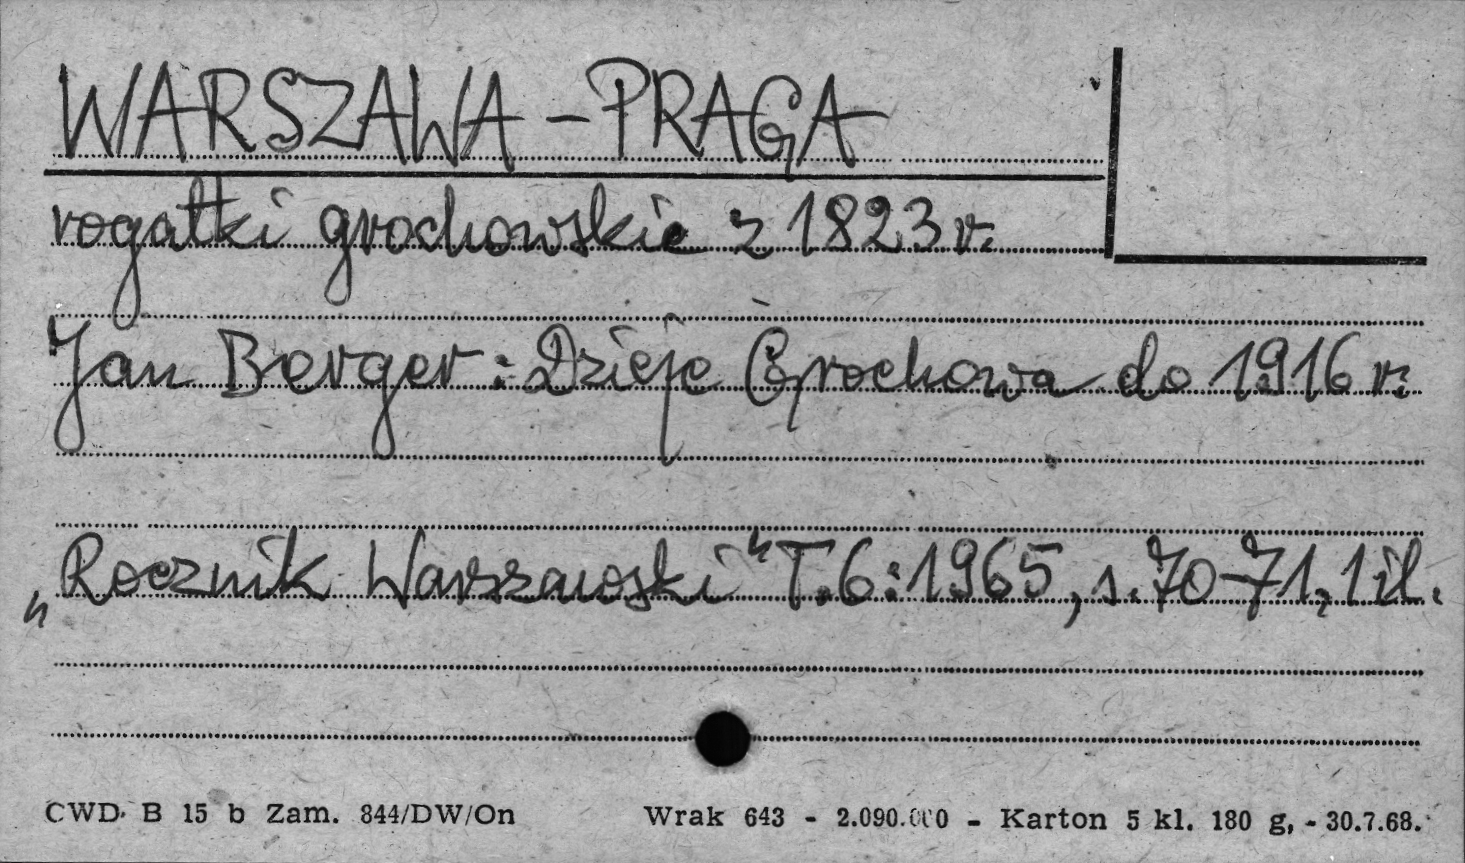 WARSZAWA - PRAGA
rogatki grochowskie z 1823 r.
Jan Berger: Dzieje Grochowa do 1916 r.
„Rocznik Warszawski" T.6:1965, s.70-71, 1 il.
CWD. B 15 b Zam. 844/DW/On Wrak 643 - 2.090.000 - Karton 5 kl. 180 g, - 30.7.68.